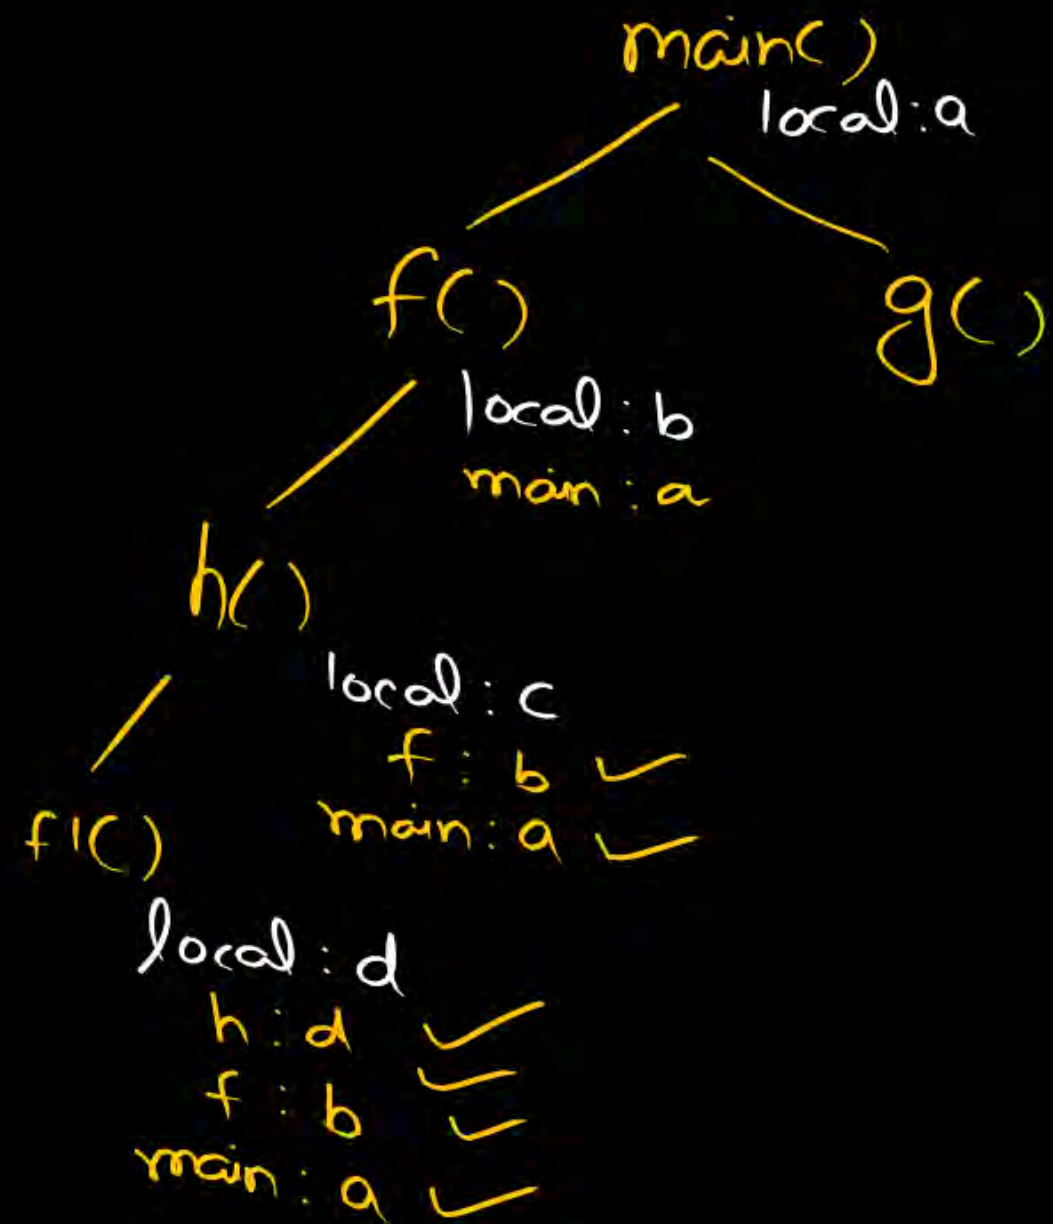 main()
local: a
f()
g()
local: b
main: a
h()
local: c
f: b ✓
main: a ✓
f1()
local: d
h: d ✓
f: b ✓ ✓
main: a ✓